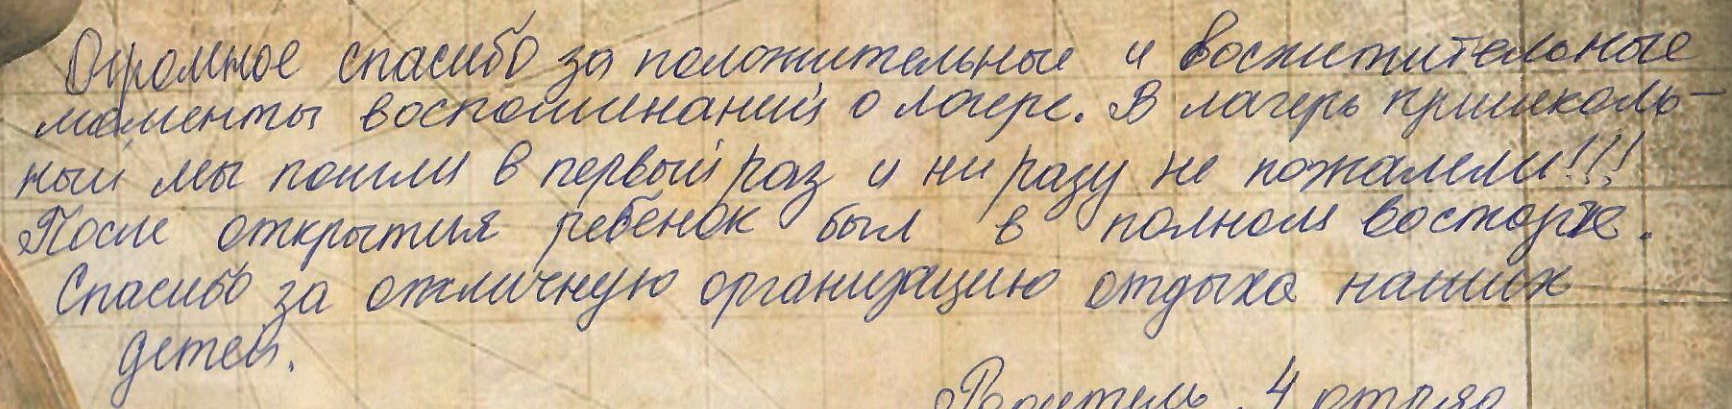 Огромное спасибо за положительные и восхитительные
моменты воспоминаний о лагере. В лагерь пришколь-
ный мы пошли в первый раз и ни разу не пожалели!!!
После открытия ребёнок был в полном восторге.
Спасибо за отличную организацию отдыха наших
детей.
Родитель 4 отряд